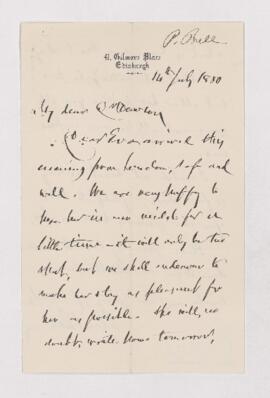 P. Bell
41, Gilmore Place
Edinburgh
14th July 1880
My dear Mrs Dawson,
Dear Eva arrived this
evening from London, safe and
well. We are very happy to
have her in our midst for a
little time – it will only be too
short, but we shall endeavour to
make her stay as pleasant for
her as possible. She will, no
doubt, write home tomorrow,